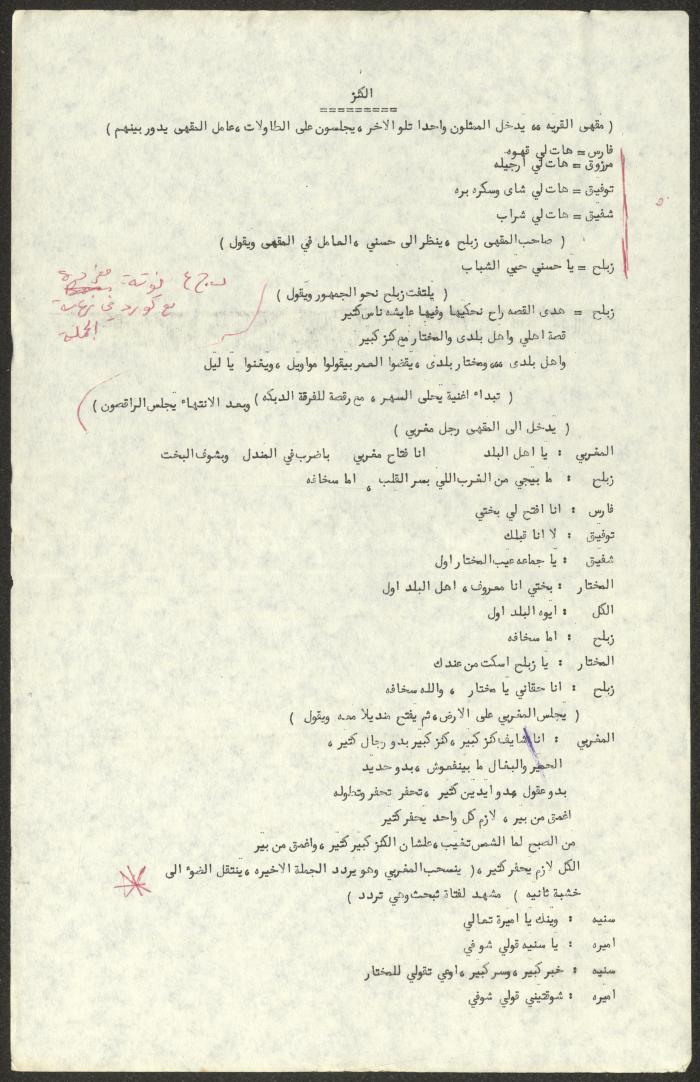 الكنز
=========
( مقهى القريه ،، يدخل الممثلون واحدا تلو الاخر ، يجلسون على الطاولات ، عامل المقهى يدور بينهم )
فارس = هات لي قهوه
مرزوق = هات لي أرجيله
توفيق = هات لي شاى وسكره بره
شفيق = هات لي شراب
( صاحب المقهى زبلح ، ينظر الى حسني ، العامل في المقهى ويقول )
زبلح = يا حسني حيي الشباب
( يلتفت زبلح نحو الجمهور ويقول )
زبلح = هدى القصه راح نحكيها وفيها عايشه ناس كثير
قصة اهلي واهل بلدى والمختار مع كنز كبير
واهل بلدى ،،، ومختار بلدى ، يقضوا العمر بيقولوا مواويل ، ويغنوا يا ليل
( تبداء اغنية يحلى السهر ، مع رقصة للفرقة الدبكه ) وبعد الانتهاء يجلس الراقصون )
( يدخل الى المقهى رجل مغربي )
المغربي : يا اهل البلد انا فتاح مغربي باضرب في المندل وبشوف البخت
زبلح : ما بيجي من الغرب اللي يسر القلب ، اما سخافه
فارس : انا افتح لي بختي
توفيق : لا انا قبلك
شفيق : يا جماعه عيب المختار اول
المختار : بختي انا معروف ، اهل البلد اول
الكل : ايوه البلد اول
زبلح : اما سخافه
المختار : يا زبلح اسكت من عندك
زبلح : انا حقاني يا مختار ، والله سخافه
( يجلس المغربي على الارض ، ثم يفتح منديلا معه ويقول )
المغربي : انا شايف كنز كبير ، كنز كبير بدو رجال كثير ،
الحمير والبغال ما بينفعوش ، بدو حديد
بدو عقول بدو ايدين كثير ، تحفر تحفر وتطوله
اغمق من بير ، لازم كل واحد يحفر كثير
من الصبح لما الشمس تغيب ، علشان الكنز كبير كثير ، واغمق من بير
الكل لازم يحفر كثير ، ( ينسحب المغربي وهو يردد الجملة الاخيره ، ينتقل الضوء الى
خشبة ثانيه ) مشهد لفتاة تبحث وهي تردد )
سنيه : وينك يا اميرة تعالي
اميره : يا سنيه قولي شو في
سنيه : خبر كبير ، وسر كبير ، اوعي تقولي للمختار
اميره : شوقتيني قولي شوفي
نوتة
في نهاية
الجملة